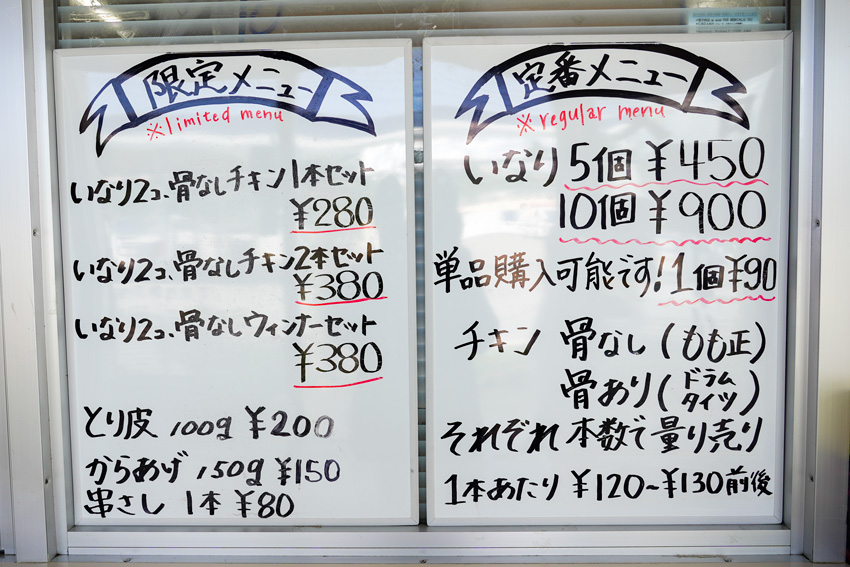 限定メニュー
※limited menu
いなり2コ、骨なしチキン1本セット
¥280
いなり2コ、骨なしチキン2本セット
¥380
いなり2コ、骨なしウィンナーセット
¥380
とり皮 100g ¥200
からあげ 150g ¥150
串さし 1本 ¥80
定番メニュー
※regular menu
いなり 5個 ¥450
10個 ¥900
単品購入可能です!1個¥90
チキン 骨なし(もも正)
骨あり(ドラム
タイツ)
それぞれ本数で量り売り
1本あたり ¥120~¥130前後